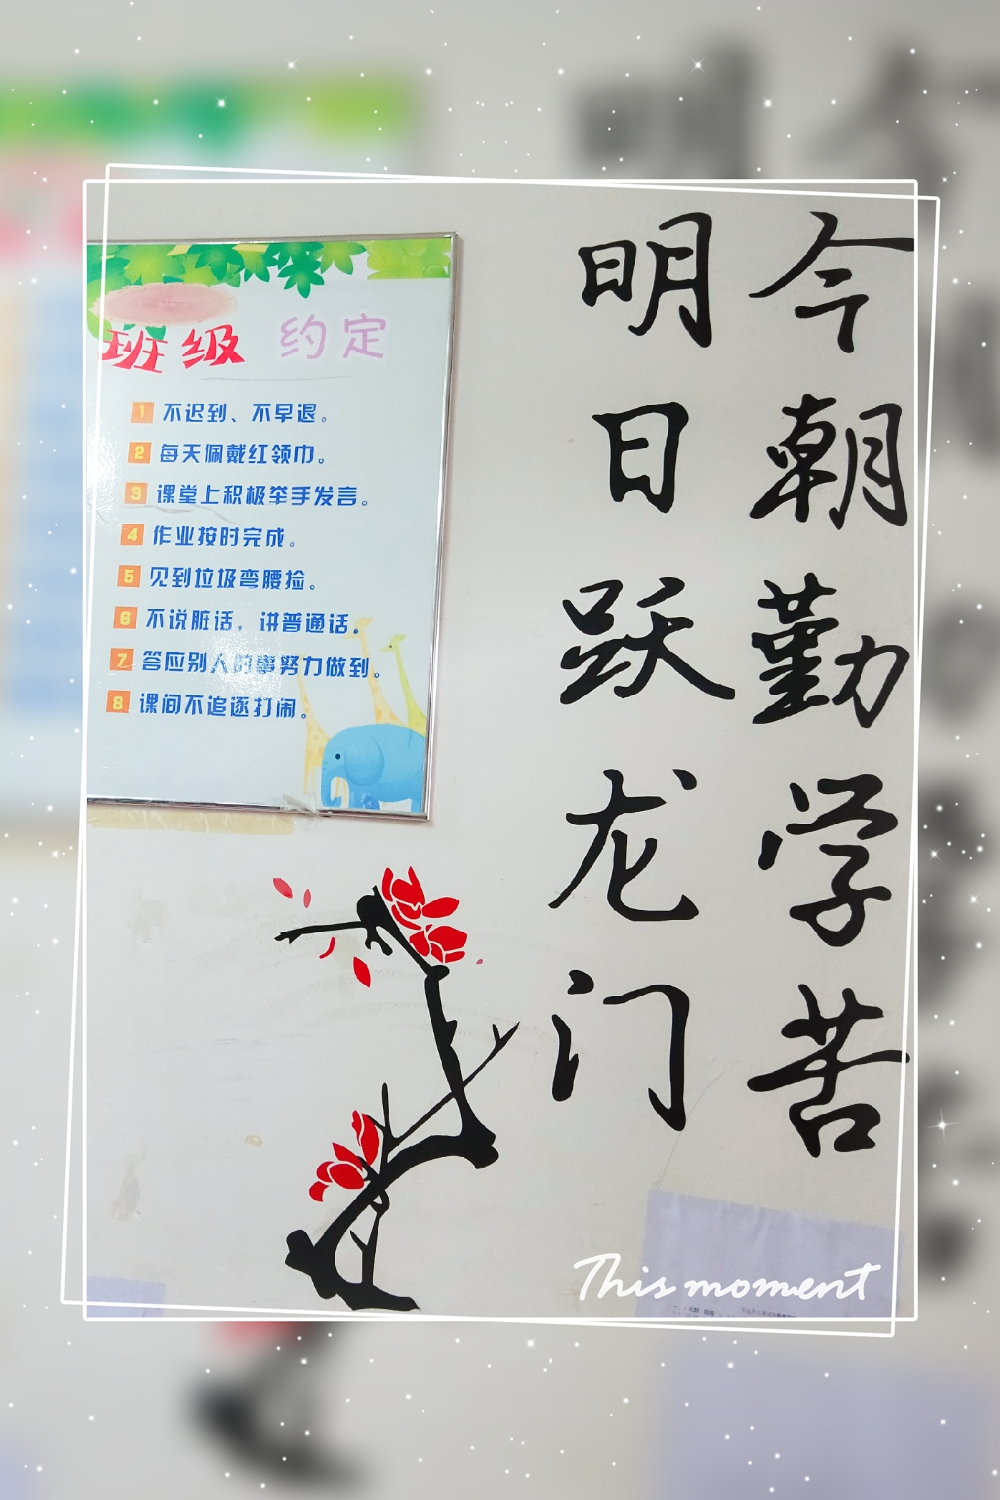 今朝勤学苦
明日跃龙门
班级 约定
1 不迟到、不早退。
2 每天佩戴红领巾。
3 课堂上积极举手发言。
4 作业按时完成。
5 见到垃圾弯腰捡。
6 不说脏话，讲普通话。
7 答应别人的事努力做到。
8 课间不追逐打闹。
This moment